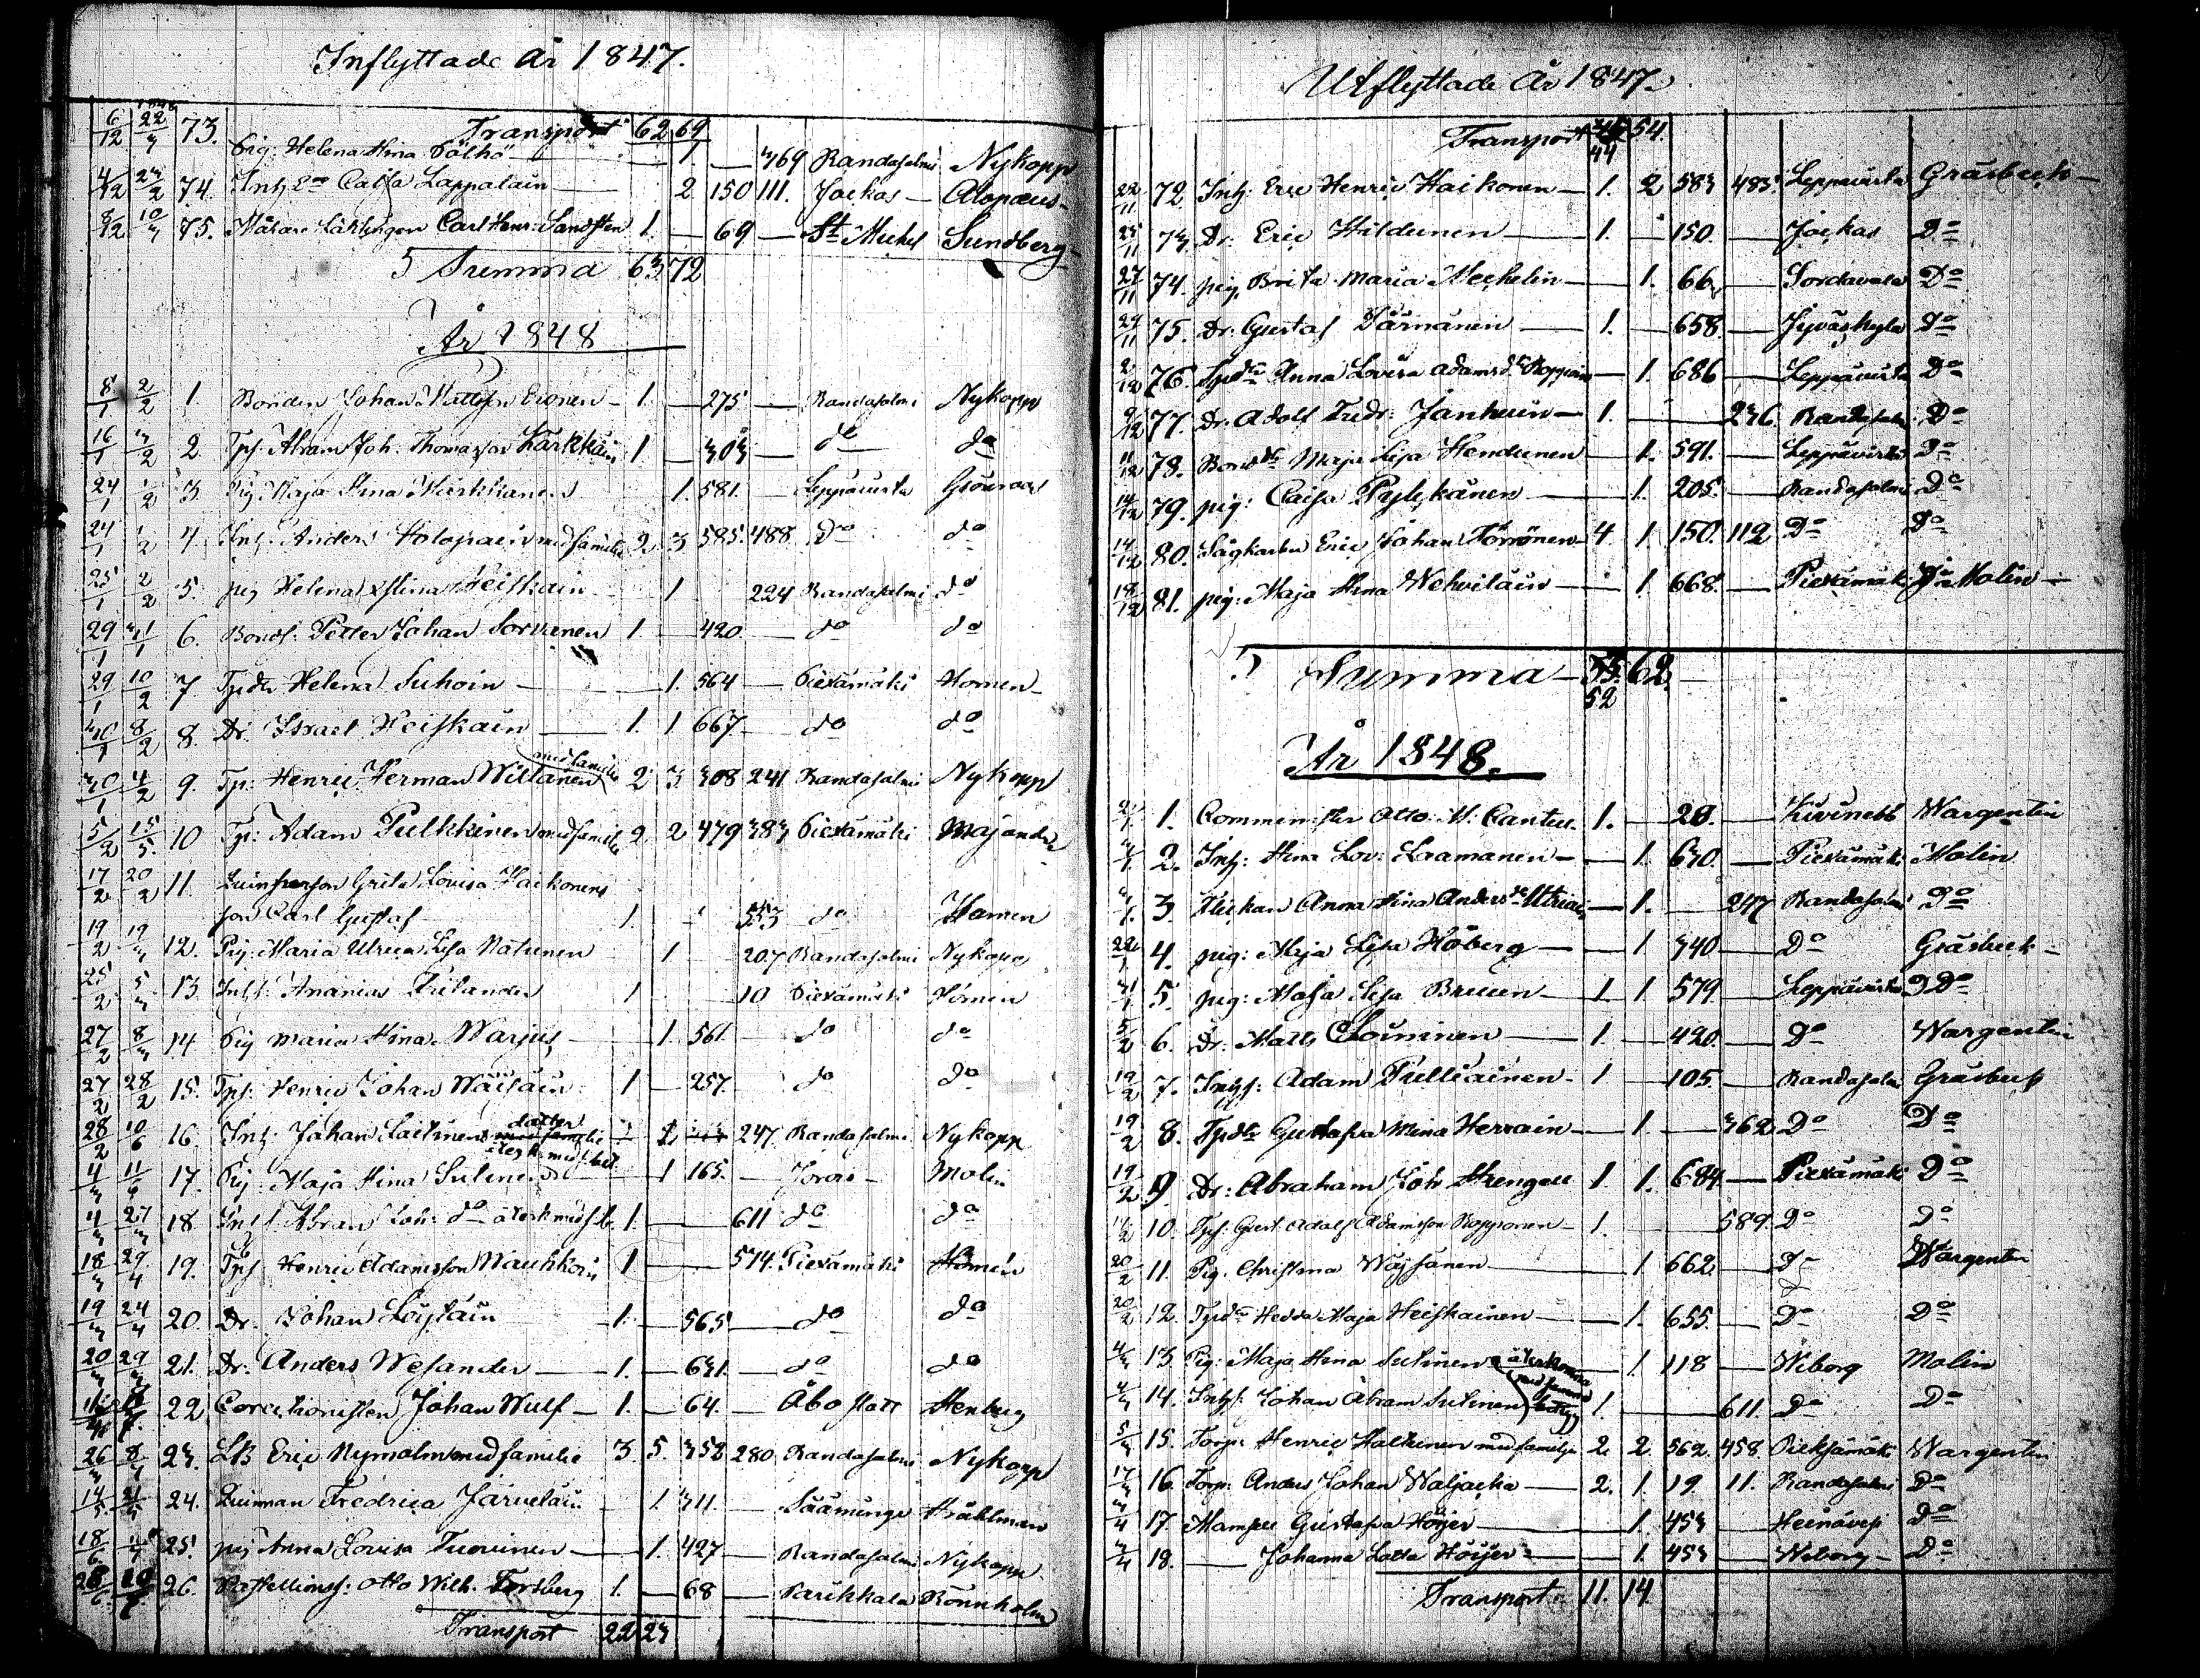 Inflyttade År 1847.
Transport 62 69
6/12 22/3 73. Pig: Helena Stina Pölhö — 1. — 369 Randasalmi Nykopp
4/12 74. Inh: Caisa Lappalain — 2 150 111. Jockas — Alopæus
8/12 10/3 75. Målare Lärlingen Carl Henr: Sandsten 1. — 69 — St Michel Sundberg
Summa 63 72
År 1848
8/1 2/2 1. Bonden Johan Mattsson Eronen — 1. — 275 — Randasalmi Nykopp
16/1 3/2 2. Tps: Abram Joh. Thomasson Kärkkäin 1. — 303 — do do
24/1 1/2 3 Pig Maja Stina — 1. 581. — Leppävirta
24/1 1/2 4 Inh: Anders Holopain med familie 2 3 585. 488 do do
25/1 2/2 5. pig Helena Stina Heiskain 1 224 Randasalmi do
29/1 31/1 6. Bonds: Petter Johan Sorvanen 1. — 420 — do do
29/1 10/2 7 Tpdr Helena Suhoin — 1. 564 — Piexämäki Homen
30/1 8/2 8. Dr. Israel Heiskain — 1. 1 667 do do
30/1 4/2 9. Tp: Henric Herman Wiltanen med familie 2 3 308 241 Randasalmi Nykopp
5/2 15/5. 10 Tp: Adam Pulkkinen med familie 2 2 479 383 Piexämäki Majander
17/2 20/2 11. Qvinsperson Greta Lovisa Haikonens
son Carl Gustaf 1. do Homen
19/2 19/3 12. Pig: Maria Ulrica Lisa Natunen 1 207 Randasalmi Nykopp
25/2 5/3 13 Inhs: Ananias Frilander 1 10 Piexämäki Homén
27/2 8/3 14 Pig Maria Stina Warjus — 1. 561. do do
27/2 28/2 15. Tps: Henric Johan Wäisäin 1 — 257. do do
28/2 10/6 16. Inh: Johan Laitinens dotter 1 247. Randasalmi Nykopp
4/3 17. Pig: Maja Stina Sutinen — 1 165. — Jorois — Molin
4/3 27/3 18. Inhs: Abram Joh: do återk. med bet. 1. — 611 do do
18/3 29/4 19. Tps Henric Adamsson Wauhkoin 1 — 574. Piexämäki Homén
19/3 24/4 20. Dr. Johan Löijtäin — 1. — 565 — do do
20/3 29/3 21. Dr: Anders Wesander — 1. — 631. — do do
22 Johan Wulf — 1. — 64. — Åbo stad Stenberg
26/3 23. LB Eric Nymalm med familie 3. 5. 352 280 Randasalmi Nykopp
14/5 24. Qvinnan Fredrica Järveläin 1. 311. — Säämingi Stråhlman
18/6 25. pig Anna Lovisa Tuovinen — 1. 427 — Randasalmi Nykopp
26. Otto Wilh. Forsberg 1. — 68 — Parikkala Rönnholm
Transport 22 23
Utflyttade År 1847.
Transport 44 54.
22/11 72. Inh: Eric Henric Haikonen — 1. 2 583 485. Leppävirta Gräsbeck —
25/11 73. Dr: Eric Hildunen — 1. — 150. — Jockas Do
27/11 74. pig. Brita Maria Mechelin — 1. 66 — Sordavala Do
29/11 75. Dr: Gustaf Tärnänen — 1. — 658. — Jyväskyla Do
2/12 76. Tpdtr Anna Lovisa Adamsdr Ropponen — 1. 686 — Leppävirta Do
9/12 77. Dr. Adolf Fredr: Janhuin — 1. — 236. Randasalmi Do
11/12 78. Bonddr Maja Lisa Hendunen — 1. 591. — Leppävirta Do
14/12 79. pig: Caisa Pylykänen — 1. 205. — Randasalmi Do
14/12 80. Sågkarlen Eric Johan Törrönen — 4 1. 150. 112 Do Do
18/12 81. pig: Maja Stina Wehviläin — 1 668. — Piexämäki Molin —
Summa 52 62.
År 1848.
1. Otto M. Cantell. 1. — 28. — Kivinebb Wargentin
2. Inh: Stina Lov: Laamanen — 1. 630. — Piexämäki Molin
3 Anna Stina — 1. — 247 Randasalmi Do
22/1 4. pig: Maja Lisa Höberg — 1 340 — Do Gräsbeck —
31/1 5. pig: Maja Lisa Bruun — 1. 1 579. — Leppävirta Do
5/2 6. Dr. Matts Louninen — 1. — 420. — Do Wargentin
19/2 7. Inhs: Adam Pulliainen — 1 — 105. — Randasalmi Gräsbeck
19/2 8. Tpdtr Gustafva Mina Herrain — 1 — 362 Do Do
19/2 9 Dr: Abraham Joh Strengell 1 1. 684. — Piexämäki Do
10. Tps: Gust. Adolf Adamsson Ropponen — 1. 589. Do Do
20/2 11. Pig. Christina Wäisänen — 1 662. — Do Wargentin
20/2 12. Tpdtr Hedda Maja Heiskainen — 1. 655. — Do Do
4/3 13. Pig: Maja Stina Sutinen — 1 118 — Wiborg Molin
4/3 14. Inhs: Johan Abram Sutinen 1. — 611. Do Do
5/3 15. Torp: Henric Halkinen med familje 2. 2. 562. 458. Pieksämäki Wargentin
17/3 16. Torp: Anders Johan Waljacka — 2. 1. 19. 11. Randasalmi Do
3/4 17. Mamsell Gustafva Höijer — 1. 453 — Heinävesi Do
3/4 18. — Johanna Lotta Höijer — 1. 453 — Wiborg — Do
Transport: 11. 14.